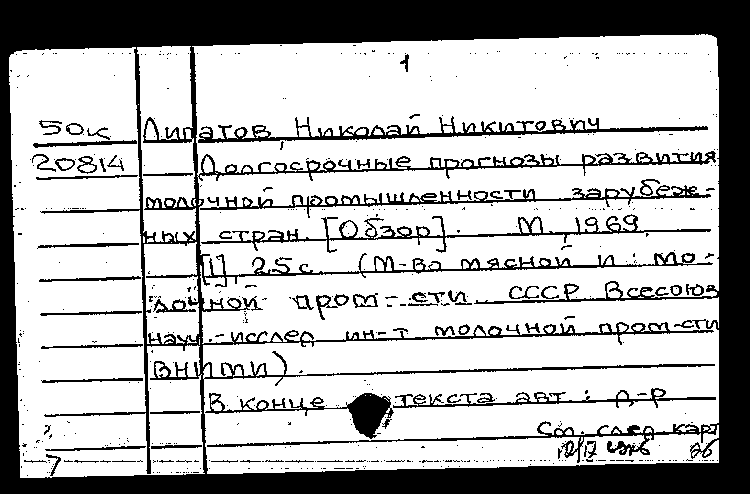 1
50к Липатов, Николай Никитович
20814 Долгосрочные прогнозы развития
молочной промышленности зарубеж-
ных стран. [Обзор]. М., 1969.
[1], 25 с. (М-во мясной и мо-
лочной пром-сти СССР. Всесоюз.
науч.-исслед. ин-т молочной пром-сти
ВНИМИ).
В конце текста авт.: д-р
См. след. карт